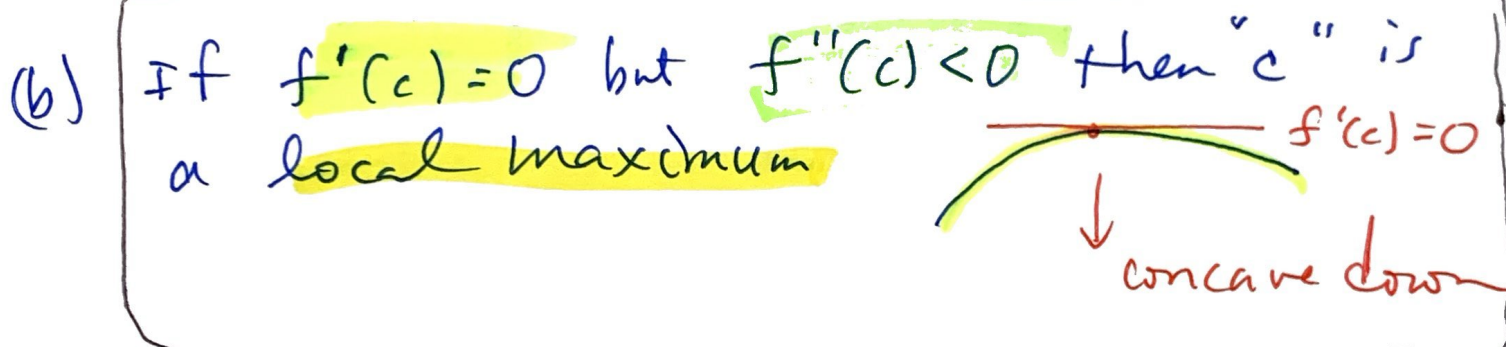 (b) If f'(c)=0 but f''(c)<0 then "c" is
a local maximum
f'(c)=0
concave down